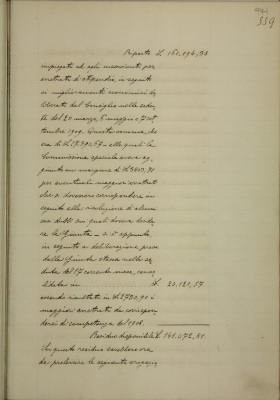 559
Riporto L. 161,194,38
impiegati ed agli inservienti per
arretrati di stipendio, in seguito
ai miglioramenti economici de-
liberati dal Consiglio nelle sedu-
te del 20 marzo, 6 maggio e 7 set-
tembre 1909. Questa somma che
era di L. 17390,67 e alla quale la
Commissione speciale aveva ag-
giunto un margine di L.
per eventuali maggiori arretrati
che si dovessero corrispondere in
seguito alla risoluzione di alcuni
casi dubbi sui quali doveva decide-
re la Giunta - si è appunto,
in seguito a deliberazione presa
dalla Giunta stessa nella se-
duta del 17 corrente mese, conso-
lidata in L. 20.121,57
essendo risultati in L. 2730,90 i
maggiori arretrati da corrispon-
dersi di competenza del 1908.
Residuo disponibile L. 141.072,81
Su questo residuo sarebbero ora
da prelevare le seguenti erogazio